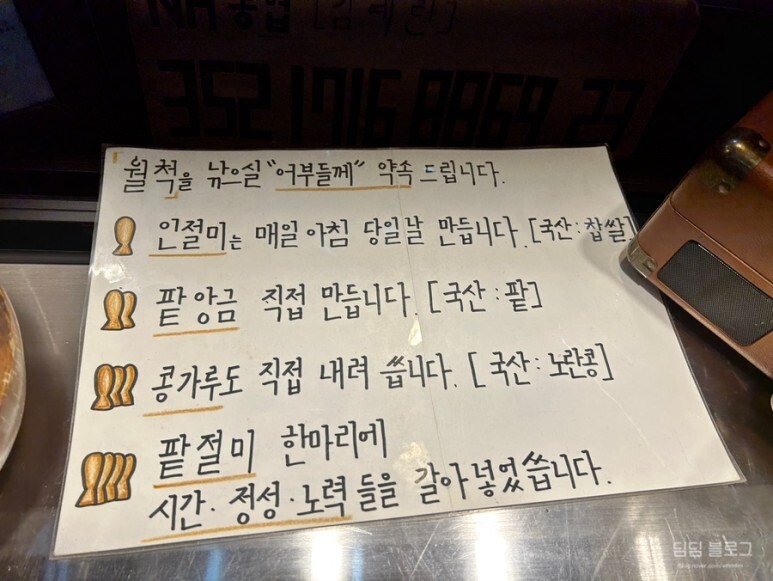 NH농협 [김예란]
352 1716 8869.23
월척을 낚으실 "어부들께" 약속 드립니다.
인절미는 매일 아침 당일날 만듭니다. [국산:찹쌀]
팥앙금 직접 만듭니다. [국산:팥]
콩가루도 직접 내려 씁니다. [국산:노란콩]
팥절미 한마리에
시간·정성·노력들을 갈아넣었씁니다.
딤딤 블로그